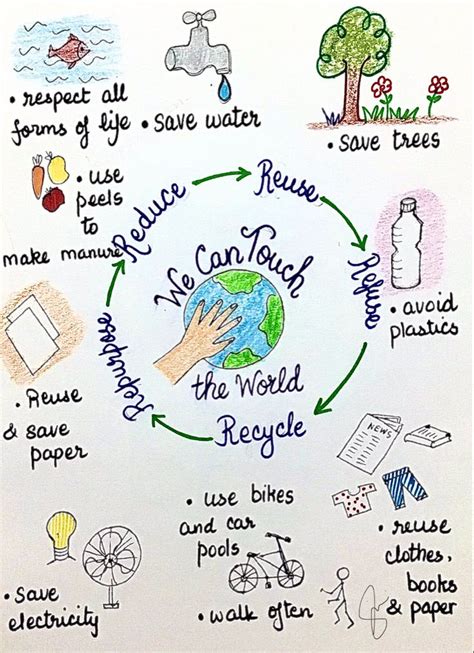 • respect all
forms of life
• save water
• save trees
• use
peels
to
make manure
Reduce
Reuse
Refuse
Recycle
Repurpose
We Can Touch
the World
• avoid
plastics
• Reuse
& save
paper
NEWS
• use bikes
and car
pools
• reuse
clothes,
books
& paper
• Save
electricity
• walk often